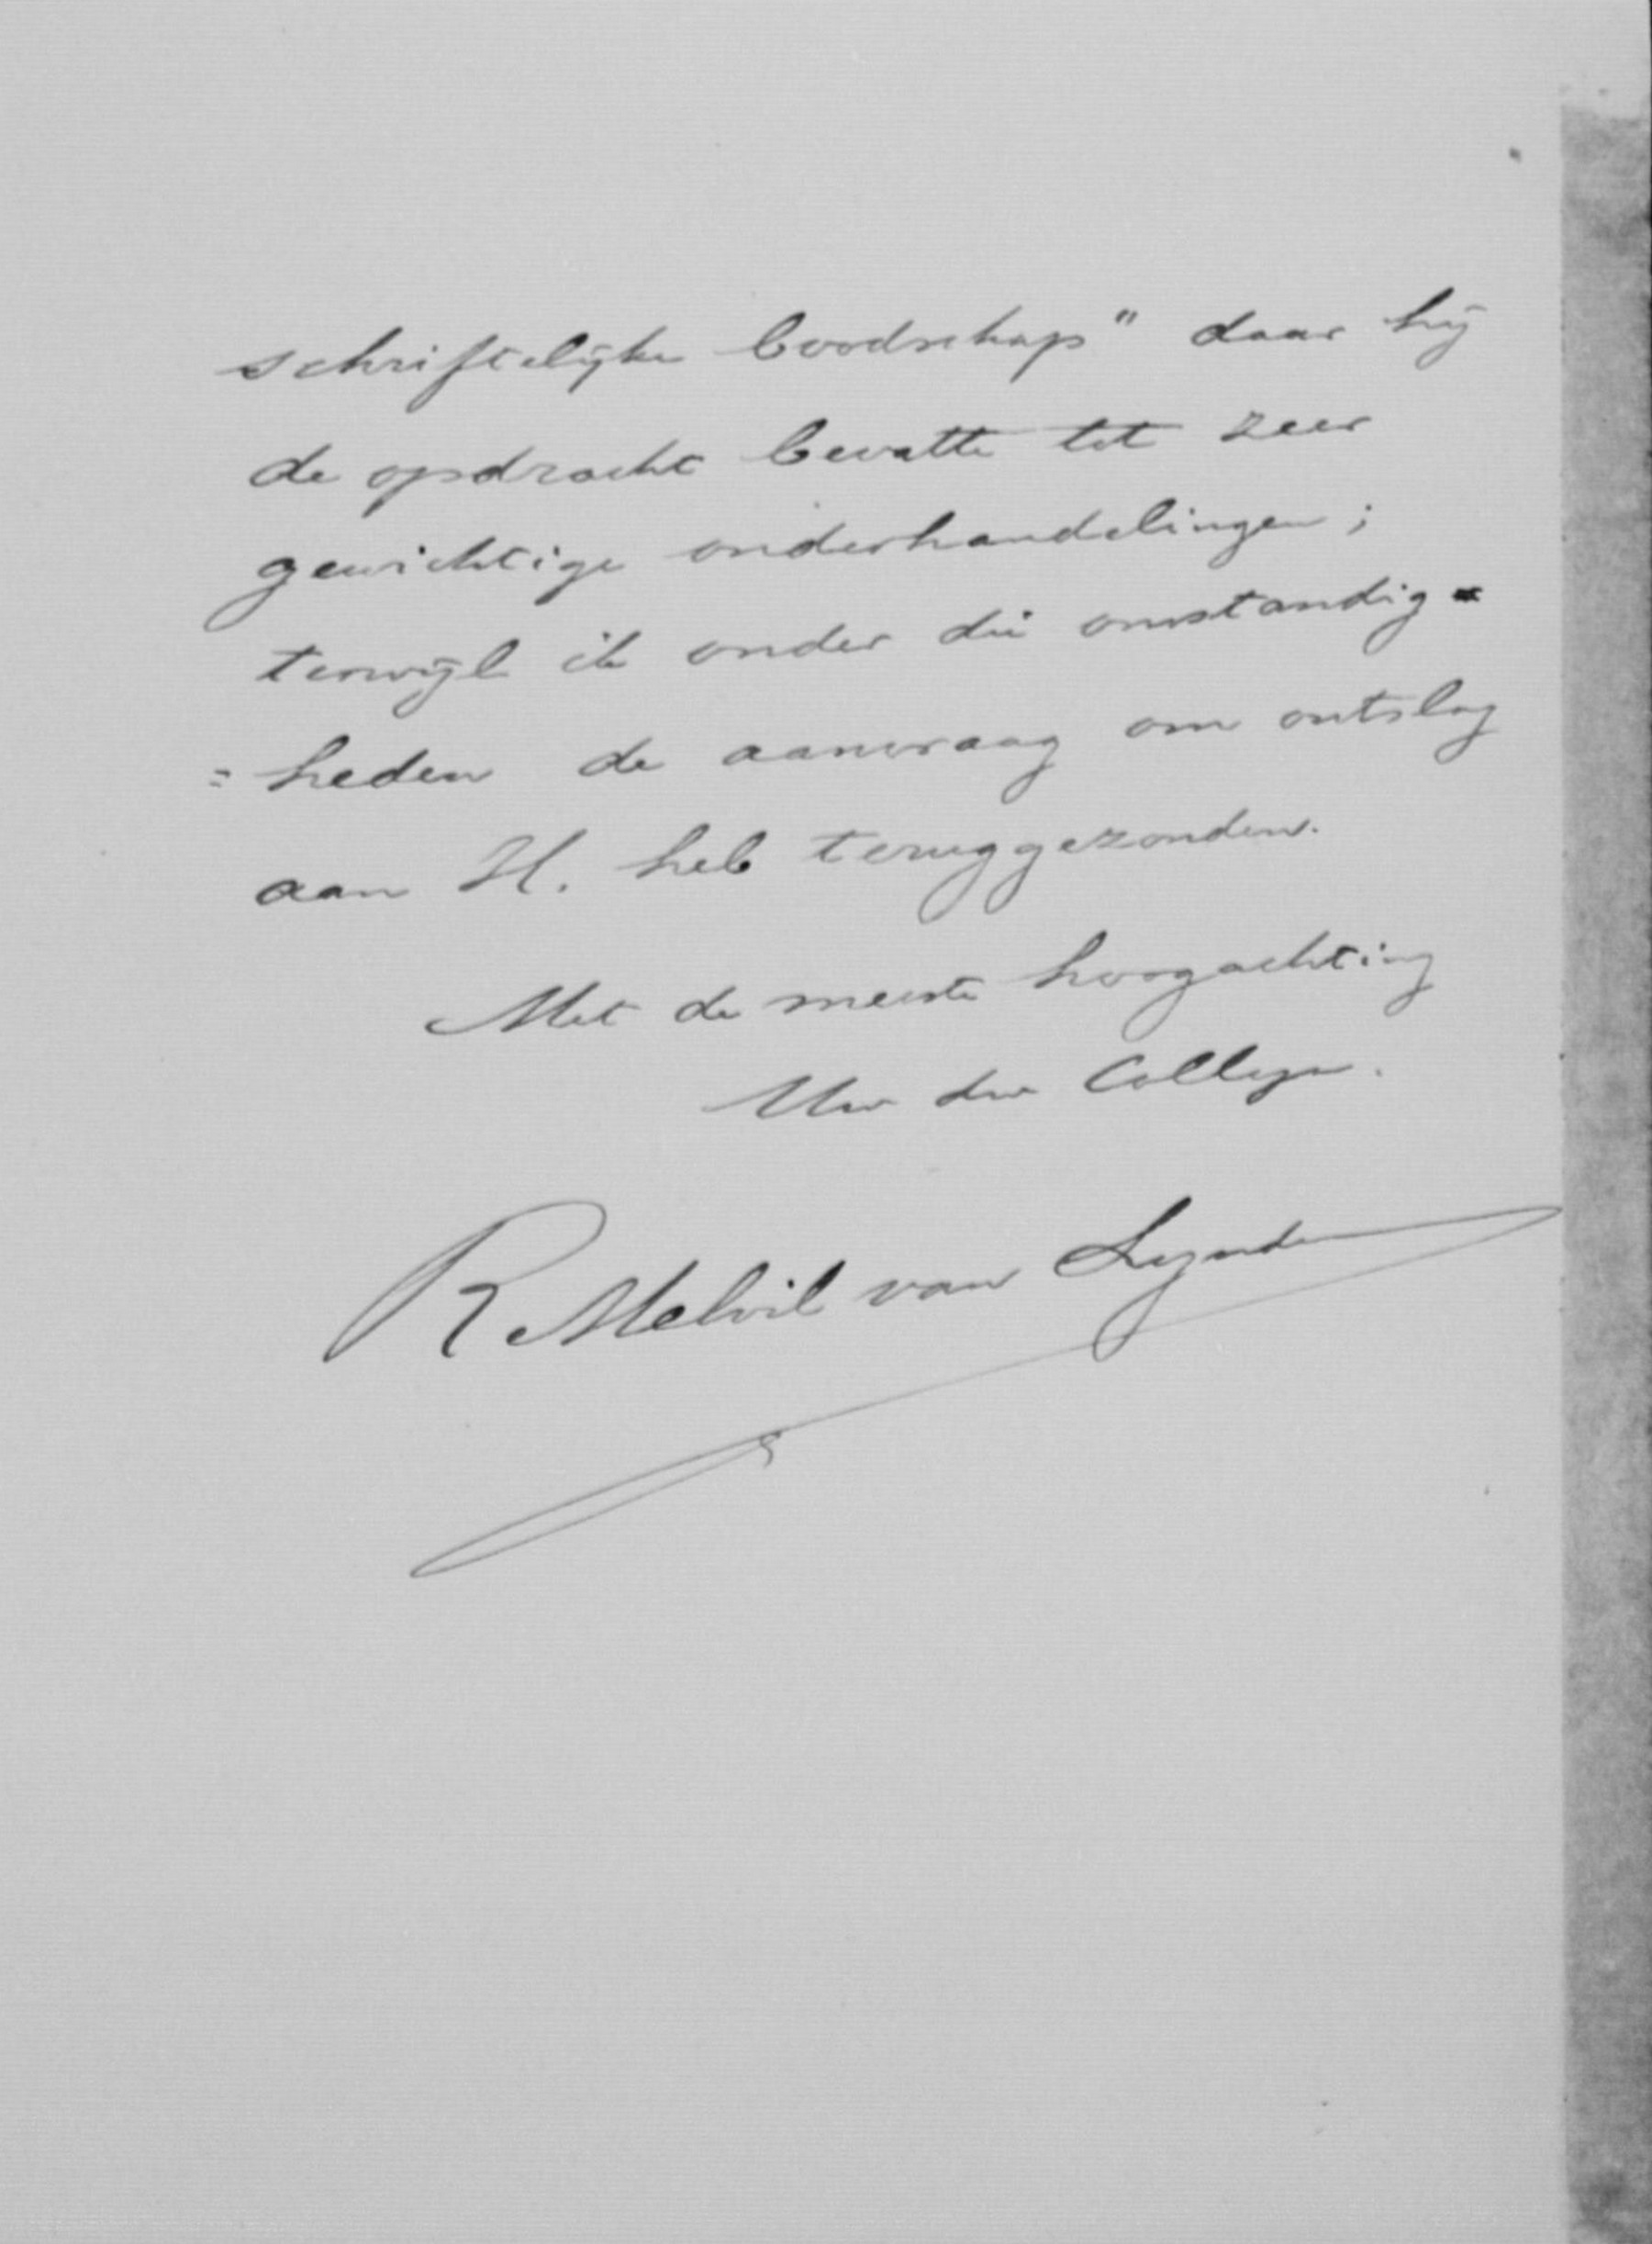 schriftelijke boodschap" daar hij
de opdracht bevatte tot zeer
gewichtige onderhandelingen;
terwijl ik onder die omstandig=
=heden de aanvraag om ontslag
aan H. heb teruggezonden.
Met de meeste hoogachting
Uw dw Collega.
R Melvil van Lynden